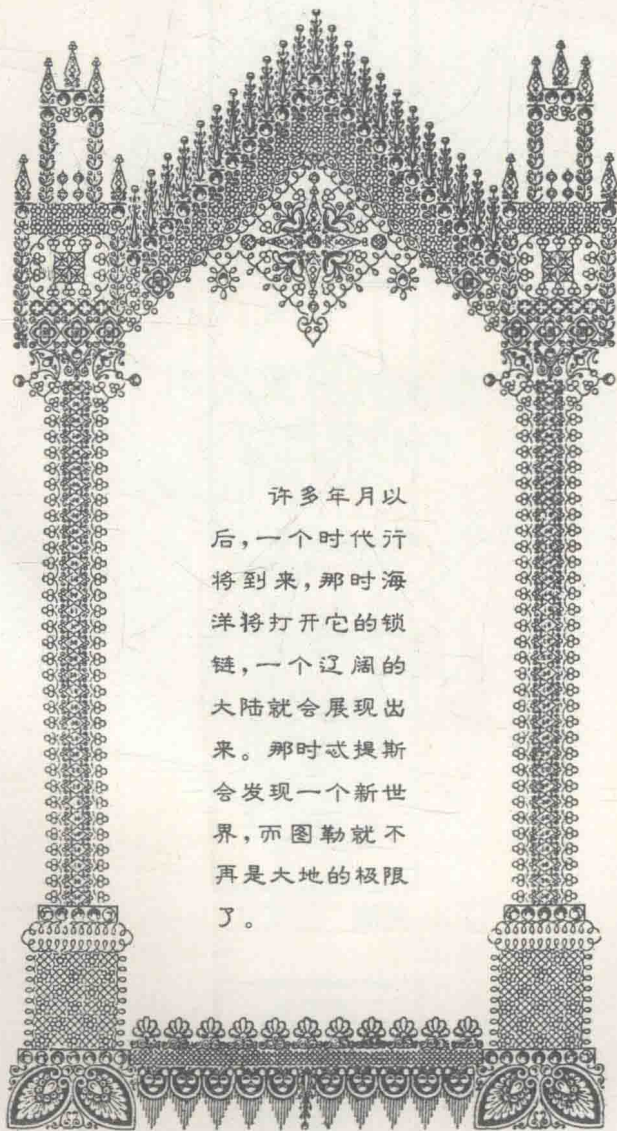 许多年月以
后，一个时代行
将到来，那时海
洋将打开它的锁
链，一个辽阔的
大陆就会展现出
来。那时忒提斯
会发现一个新世
界，而图勒就不
再是大地的极限
了。